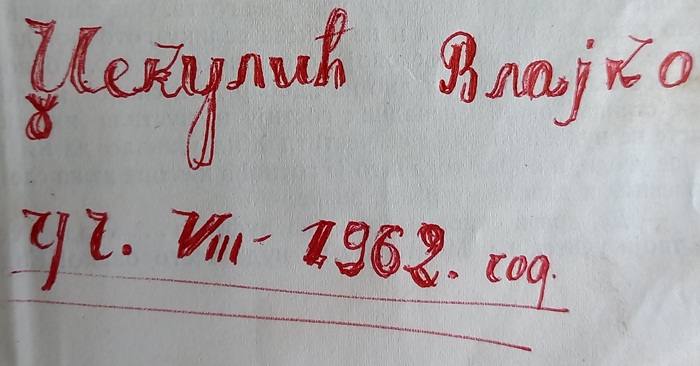 Џекулић Влајко
уч. VIII- 1962. год.